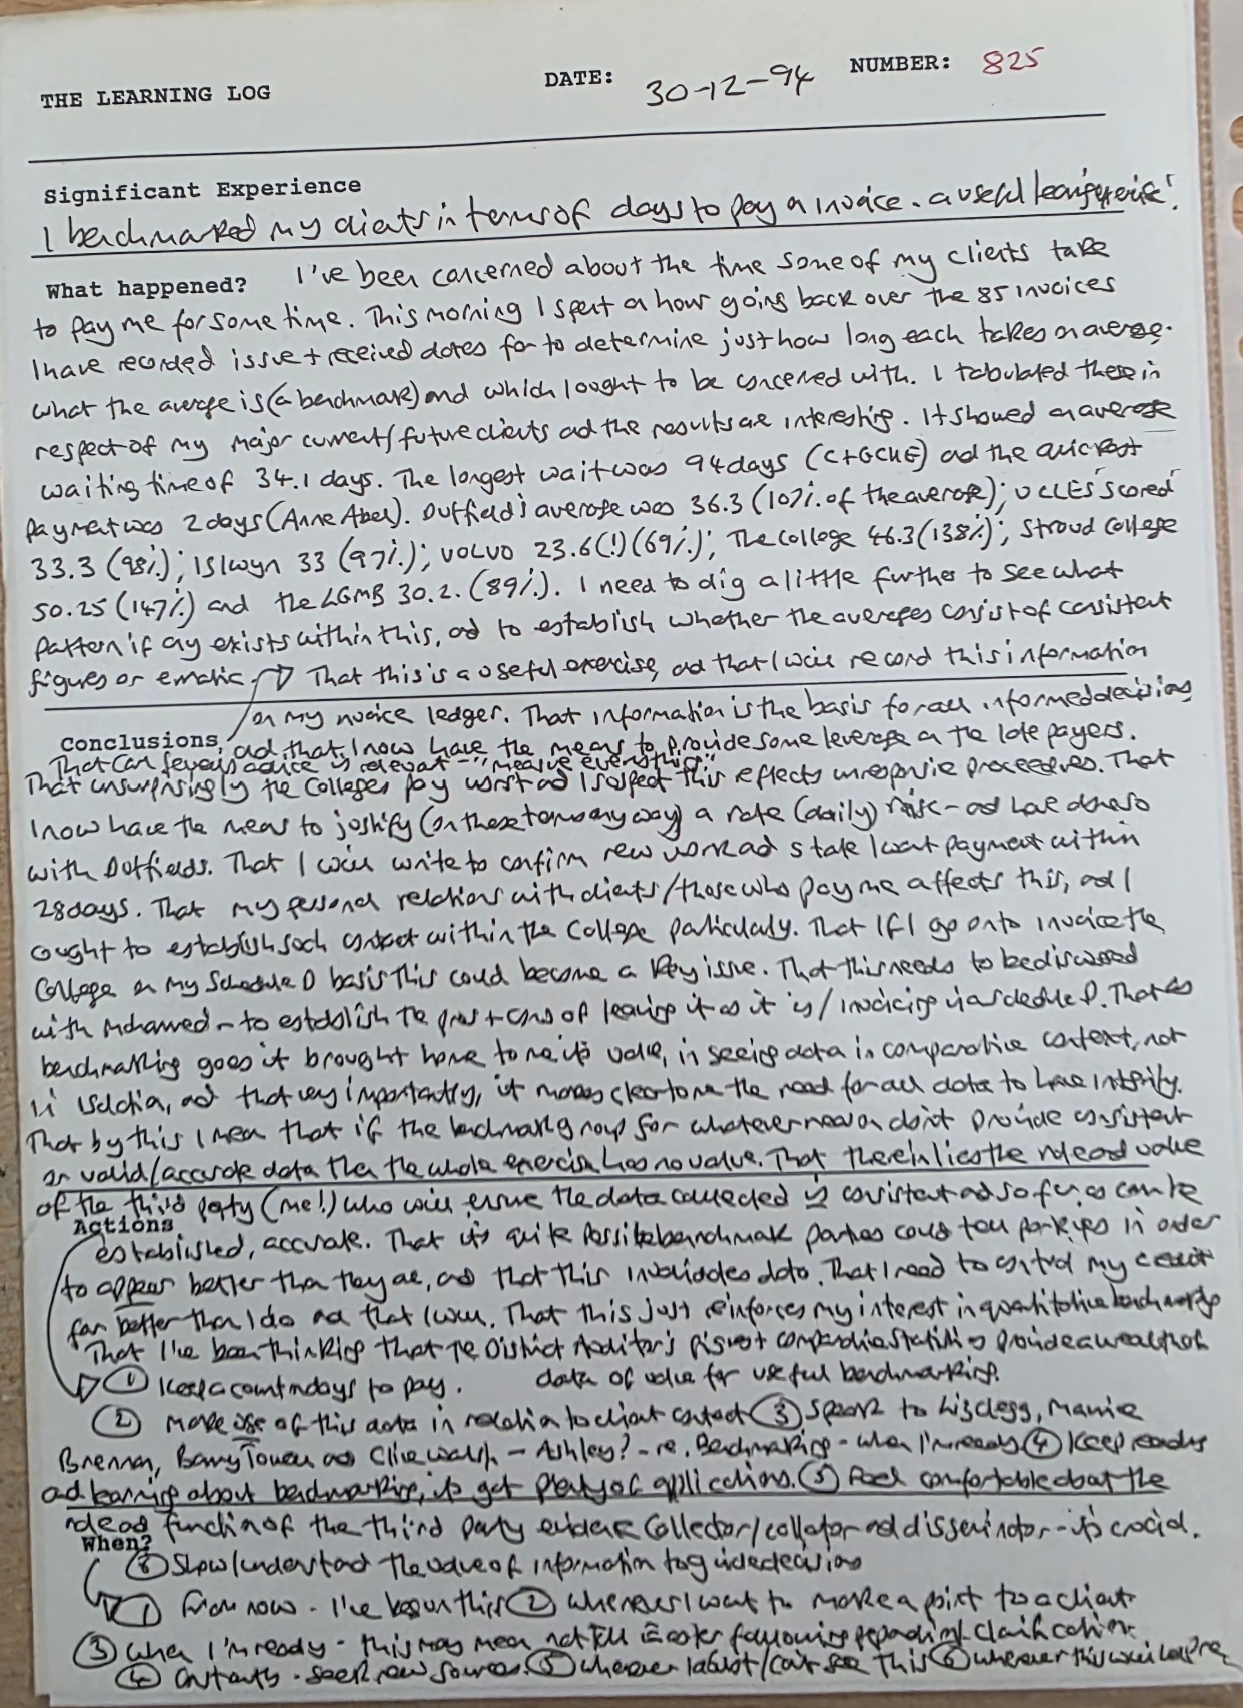 THE LEARNING LOG DATE: 30-12-94 NUMBER: 825
Significant Experience
I benchmarked my clients in terms of days to pay a invoice - a useful learning exercise!
What happened? I've been concerned about the time some of my clients take
to pay me for some time. This morning I spent an hour going back over the 85 invoices
I have recorded issue + received dates for to determine just how long each takes on average.
What the average is (a benchmark) and which I ought to be concerned with. I tabulated these in
respect of my major current/future clients and the results are interesting. It showed an average
waiting time of 34.1 days. The longest wait was 94 days (C+GCHE) and the quickest
payment was 2 days (Anne Abel). Duffield's average was 36.3 (107% of the average); UCLES 'scored'
33.3 (98%); Islwyn 33 (97%); VOLVO 23.6(!) (69%); The College 46.3 (138%); Stroud College
50.25 (147%) and the LGMB 30.2. (89%). I need to dig a little further to see what
pattern if any exists within this, and to establish whether the averages consist of consistent
figures or erratic. That this is a useful exercise, and that I will record this information
on my invoice ledger. That information is the basis for all informed decisions
Conclusions, and that I now have the means to provide some leverage on the late payers.
That advice is relevant - "measure everything"
That unsurprisingly the Colleges pay worst and I suspect this reflects unresponsive procedures. That
I now have the means to justify (on these terms anyway) a rate (daily) rise - and have done so
with Duffields. That I will write to confirm new work and state I want payment within
28 days. That my personal relations with clients/those who pay me affects this, and I
ought to establish such contact within the College particularly. That if I go onto invoice the
College on my Schedule D basis this could become a key issue. That this needs to be discussed
with Mohammed - to establish the pros + cons of leaving it as it is/invoicing via schedule D. That as
benchmarking goes it brought home to me its value, in seeing data in comparative context, not
in isolation, and that very importantly, it makes clear to me the need for all data to have integrity.
That by this I mean that if the benchmarking group for whatever reason don't provide consistent
or valid/accurate data then the whole exercise has no value. That therein lies the role and value
of the third party (me!) who will ensure the data collected is consistent and so far as can be
Actions
established, accurate. That it's quite possible benchmark parties could tell porkies in order
to appear better than they are, and that this invalidates data. That I need to control my credit
far better than I do and that I will. That this just reinforces my interest in quantitative benchmarks
That I've been thinking that the District Auditor's comparative statistics provide a wealth of
① Keep a count on days to pay. data of value for useful benchmarking.
② Make use of this data in relation to client contact ③ Speak to Liz Clegg, Marnie
Brennan, Barry Tower and Clive Walsh - Ashley? - re. Benchmarking - when I'm ready ④ Keep reading
and learning about benchmarking, it's got plenty of applications. ⑤ Feel comfortable about the
role and function of the third party evidence collector/collator and disseminator - it's crucial.
When?
⑥ Show/understand the value of information to guide decisions
① From now - I've begun this ② Whenever I want to make a point to a client
③ When I'm ready - this may mean not till Easter following clarification.
④ Constantly - seek new sources. ⑤ Whenever I doubt/can't see this ⑥ Whenever this will